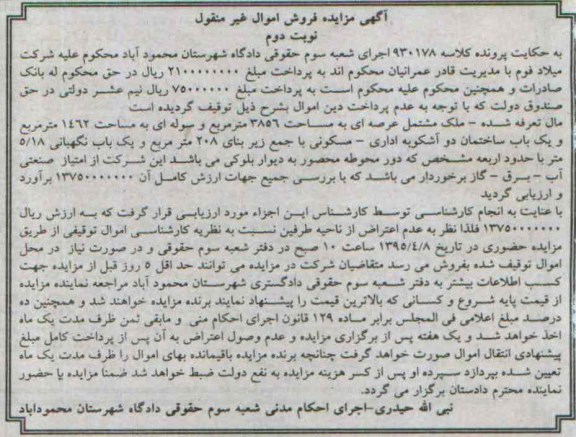 آگهی مزایده فروش اموال غیر منقول
نوبت دوم
به حکایت پرونده کلاسه ۹۳۰۱۷۸ اجرای شعبه سوم حقوقی دادگاه شهرستان محمود آباد محکوم علیه شرکت
میلاد فوم با مدیریت قادر عمرانیان محکوم اند به پرداخت مبلغ ۲۱۰۰۰۰۰۰۰۰ ریال در حق محکوم له بانک
صادرات و همچنین محکوم علیه محکوم است به پرداخت مبلغ ۷۵۰۰۰۰۰۰ ریال نیم عشر دولتی در حق
صندوق دولت که با توجه به عدم پرداخت دین اموال بشرح ذیل توقیف گردیده است
مال تعرفه شده – ملک مشتمل عرصه ای به مساحت ۳۸۵۶ مترمربع و سوله ای به مساحت ۱۴۶۲ مترمربع
و یک باب ساختمان دو آشکوبه اداری – مسکونی با جمع زیر بنای ۲۰۸ متر مربع و یک باب نگهبانی ۵/۱۸
متر با حدود اربعه مشخص که دور محوطه محصور به دیوار بلوکی می باشد این شرکت از امتیاز صنعتی
آب – برق – گاز برخوردار می باشد که با بررسی جمیع جهات ارزش کامل آن ۱۳۷۵۰۰۰۰۰۰۰ برآورد
و ارزیابی گردید
با عنایت به انجام کارشناسی توسط کارشناس این اجزاء مورد ارزیابی قرار گرفت که به ارزش ریال
۱۳۷۵۰۰۰۰۰۰۰ فلذا نظر به عدم اعتراض از ناحیه طرفین نسبت به نظریه کارشناسی اموال توقیفی از طریق
مزایده حضوری در تاریخ ۱۳۹۵/۴/۸ ساعت ۱۰ صبح در دفتر شعبه سوم حقوقی و در صورت نیاز در محل
اموال توقیف شده بفروش می رسد متقاضیان شرکت در مزایده می توانند حد اقل ۵ روز قبل از مزایده جهت
کسب اطلاعات بیشتر به دفتر شعبه سوم حقوقی دادگستری شهرستان محمود آباد مراجعه نماینده مزایده
از قیمت پایه شروع و کسانی که بالاترین قیمت را پیشنهاد نمایند برنده مزایده خواهند شد و همچنین ده
درصد مبلغ اعلامی فی المجلس برابر ماده ۱۲۹ قانون اجرای احکام منی و مابقی ثمن ظرف مدت یک ماه
اخذ خواهد شد و یک هفته پس از برگزاری مزایده و عدم وصول اعتراض به آن پس از پرداخت کامل مبلغ
پیشنهادی انتقال اموال صورت خواهد گرفت چنانچه برنده مزایده باقیمانده بهای اموال را ظرف مدت یک ماه
تعیین شده بپردازد سپرده او پس از کسر هزینه مزایده به نفع دولت ضبط خواهد شد ضمنا مزایده با حضور
نماینده محترم دادستان برگزار می گردد.
نبی الله حیدری–اجرای احکام مدنی شعبه سوم حقوقی دادگاه شهرستان محموداباد